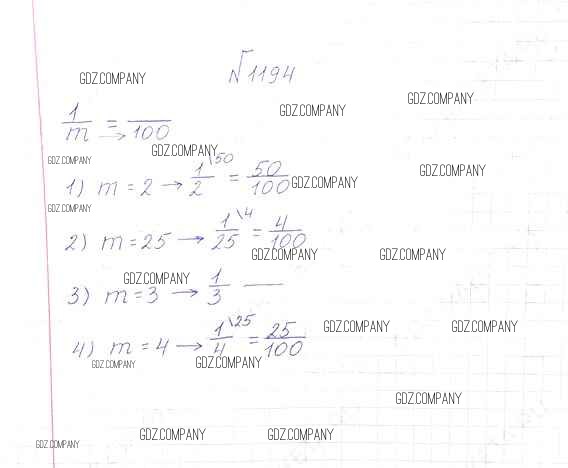 №1194
GDZ.COMPANY
GDZ.COMPANY
GDZ.COMPANY
1/m = /100
→
GDZ.COMPANY
GDZ.COMPANY
GDZ.COMPANY
1) m = 2 → 1\50/2 = 50/100
GDZ.COMPANY
GDZ.COMPANY
2) m = 25 → 1\4/25 = 4/100
GDZ.COMPANY
GDZ.COMPANY
GDZ.COMPANY
3) m = 3 → 1/3 —
GDZ.COMPANY
GDZ.COMPANY
4) m = 4 → 1\25/4 = 25/100
GDZ.COMPANY
GDZ.COMPANY
GDZ.COMPANY
GDZ.COMPANY
GDZ.COMPANY
GDZ.COMPANY